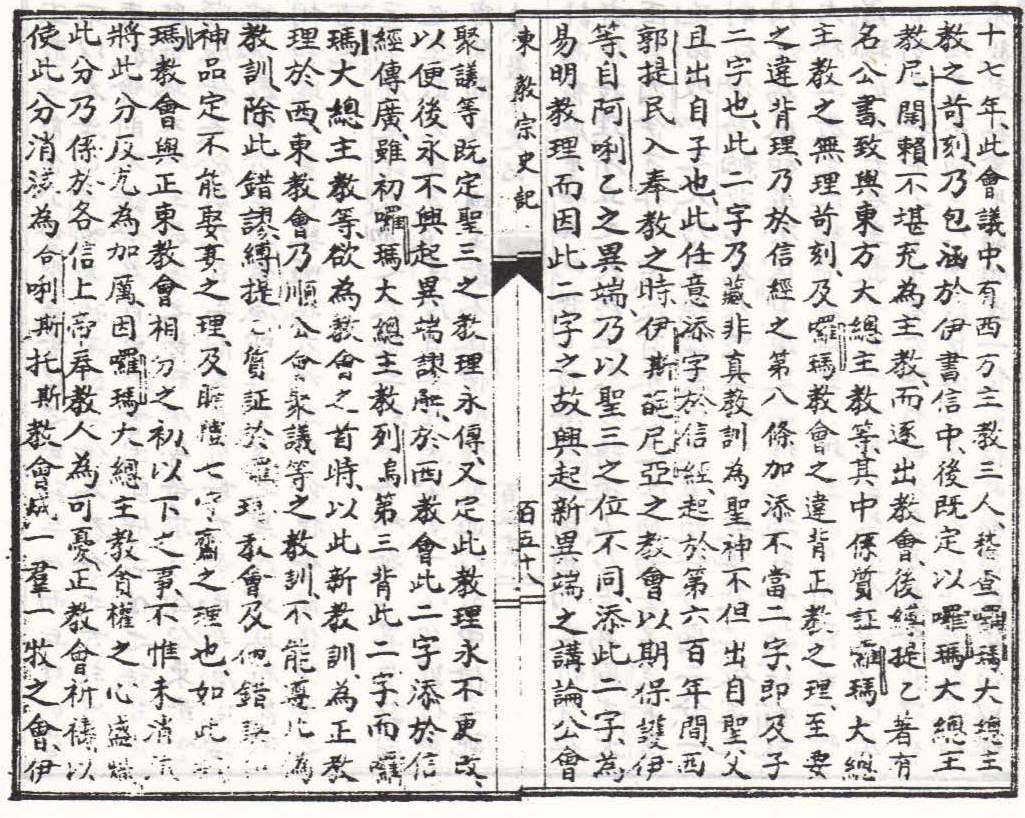 十七年、此會議中、有西方主教三人、稽查囉瑪大總主
教之苛刻、乃包涵於伊書信中、後既定以囉瑪大總王
教尼閣賴不堪充為主教、而逐出教會、後縛提乙著有
名公書、致與東方大總主教等、其中係質証囉瑪大總
主教之無理苛刻、及囉瑪教會之違背正教之理、至要
之違背理、乃於信經之第八條加添不當二字、即及子
二字也、此二字乃藏非真教訓為聖神不但出自聖父
且出自子也、此任意添字於信經、起於第六百年間、西
郭提民入奉教之時、伊斯葩尼亞之教會、以期保護伊
等、自阿唎乙之異端、乃以聖三之位不同、添此二字、為
易明教理、而因此二字之故興起新異端之講論公會
東教宗史記 百五十八
聚議等既定聖三之教理永傳、又定此教理永不更改、
以便後永不興起異端謬 、於西教會此二字添於信
經傳廣、雖初囉瑪大總主教列烏第三背此二字、而囉
瑪大總主教等、欲為教會之首時、以此新教訓、為正教
理於西、東教會乃順公會聚議等之教訓、不能尊此為
教訓、除此錯謬、縛提乙質証於囉瑪教會及他錯謬如
神品定不能娶妻之理、及 七守齋之理也、如此
瑪教會與正東教會相分之初、以下之事、不惟未消
將此分反尤為加厲、因囉瑪大總主教貪權之心盛熾
此分乃係於各信上帝奉教人為可憂、正教會祈禱以
使此分消滅為合唎斯托斯教會成一羣一牧之會、伊